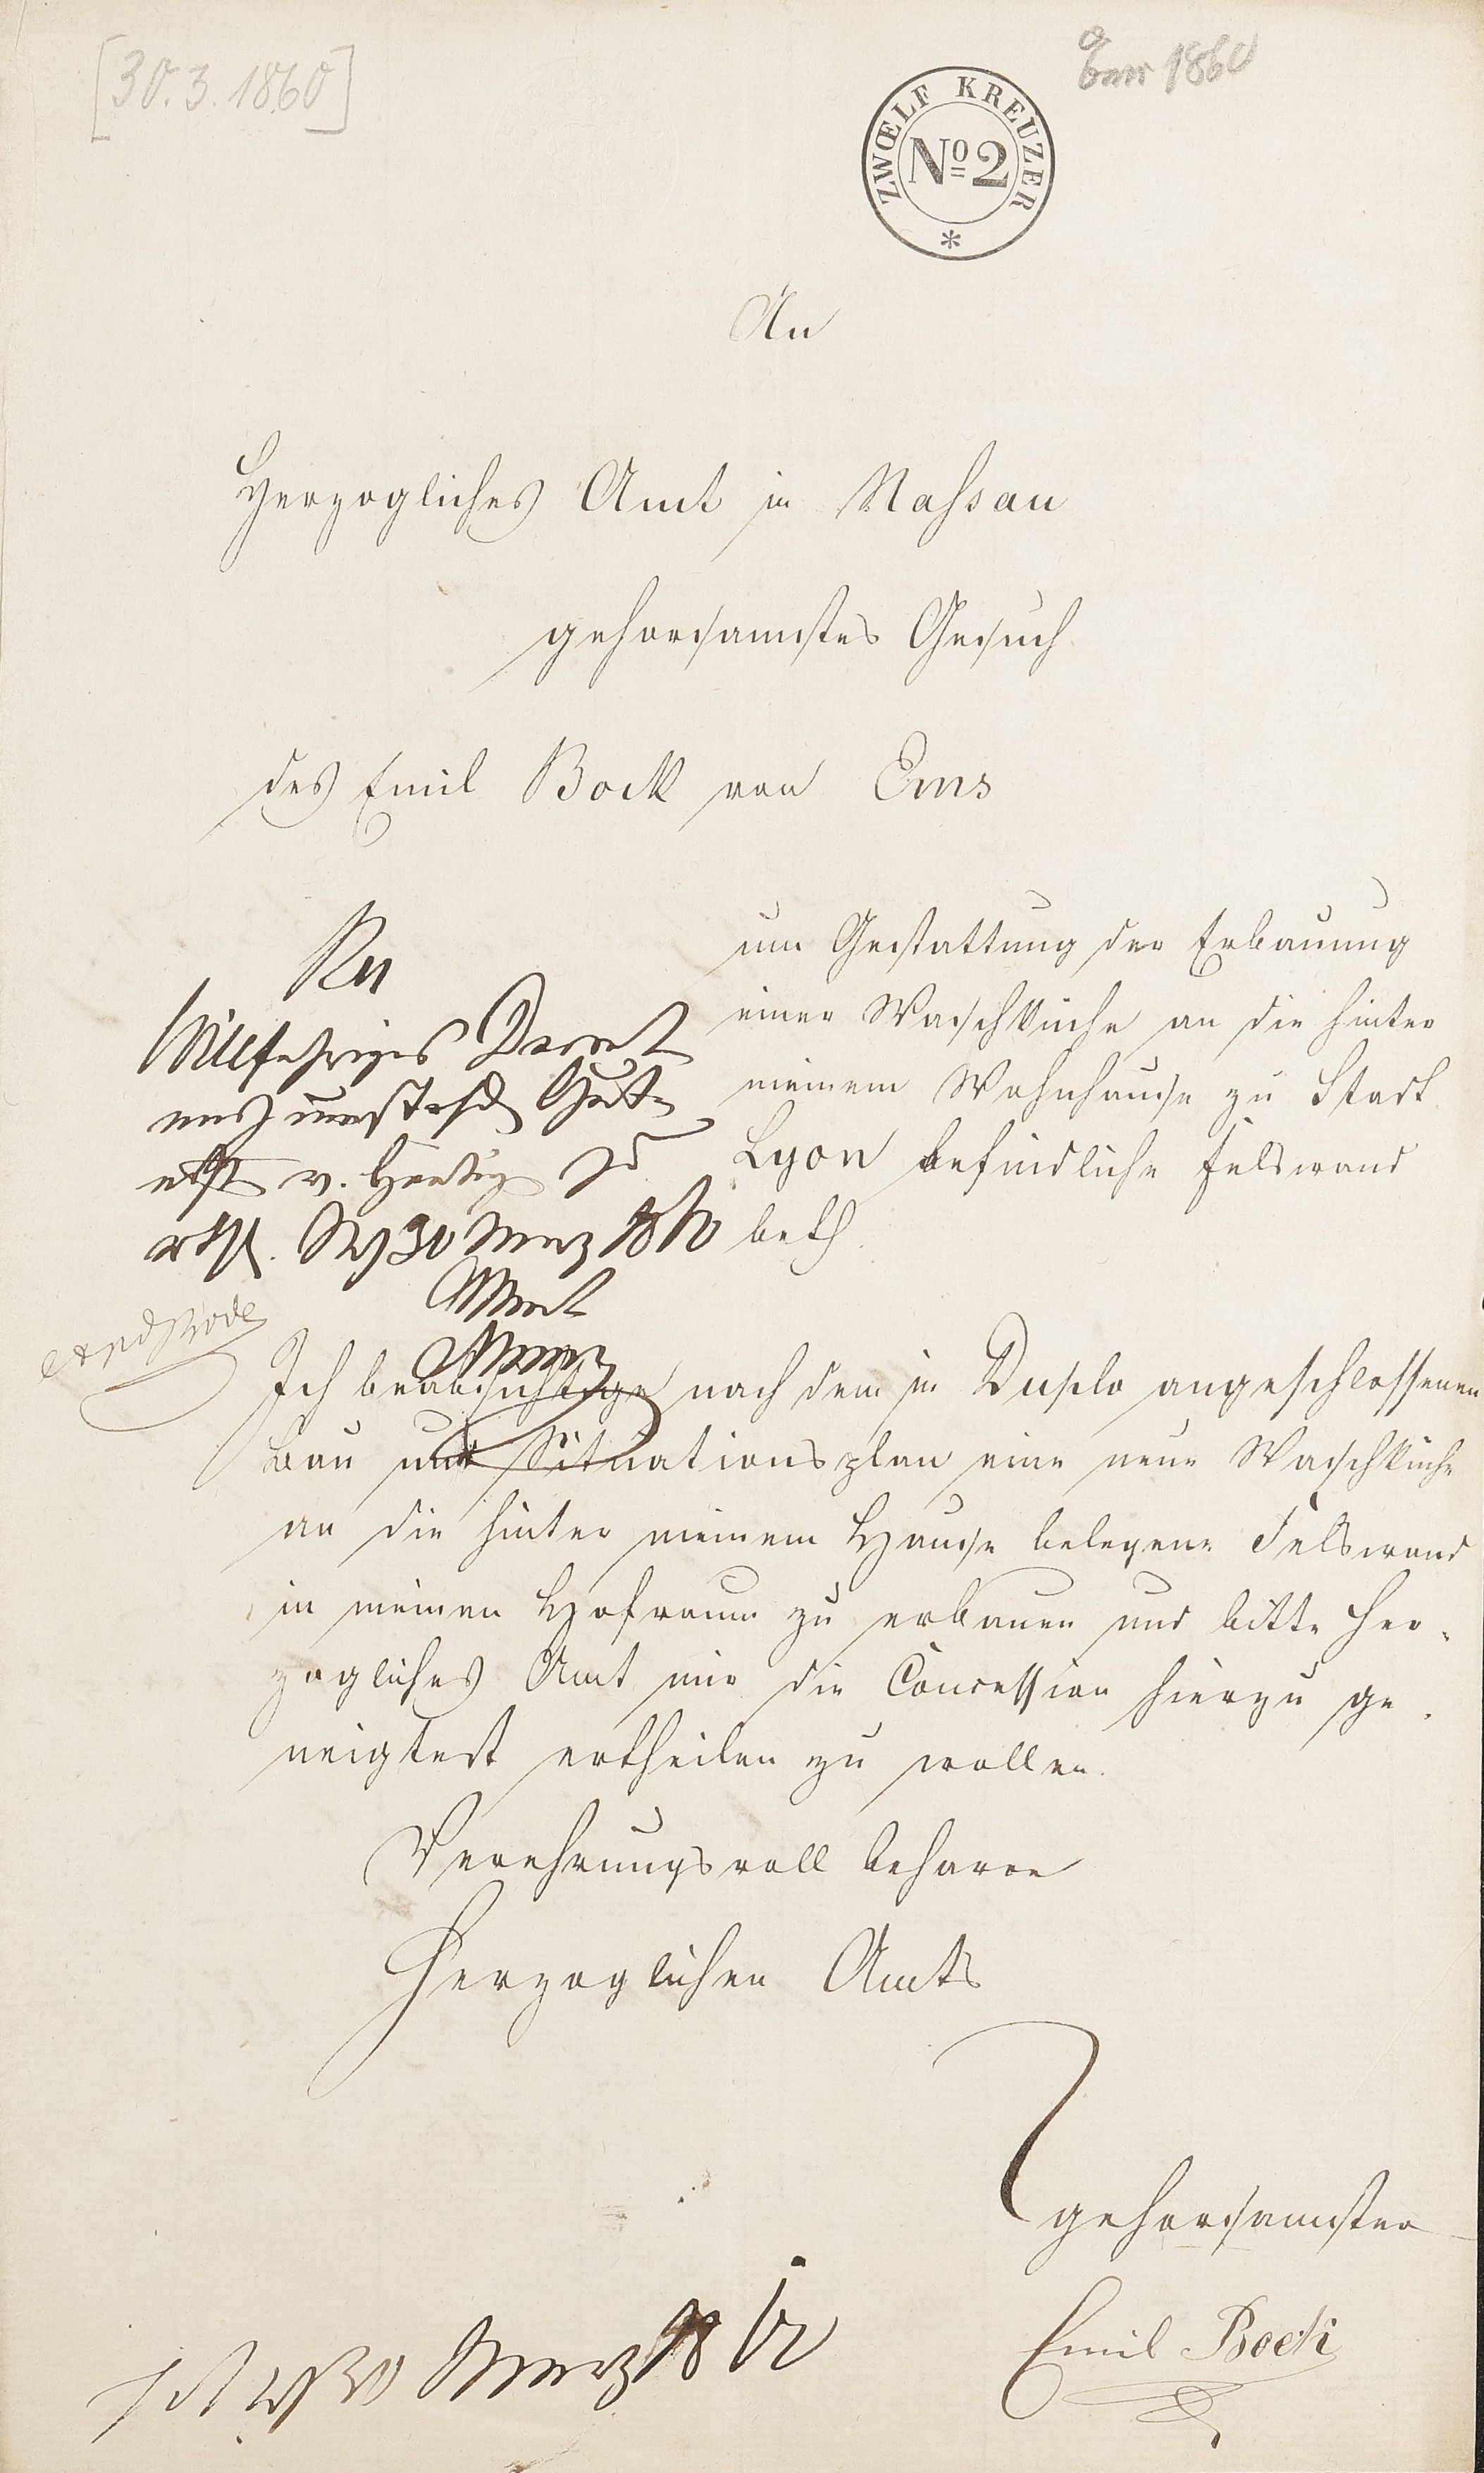 [30.3.1860]
Ems 1860
ZWŒLF KREUZER
No 2
An
Herzogliches Amt in Nassau
gehorsamstes Gesuch
des Emil Bock von Ems
um Gestattung der Erbauung
einer Waschküche an die hinter
meinem Wohnhause zu Stadt
Lyon befindliche Felswand
betf.
Rn
Willfahriges Decret
v.
30 Merz 1860
Amt
Ich beabsichtige nach dem in Duplo angeschlossenen
Bau und Situationsplan eine neue Waschküche
an die hinter meinem Hause belegene Felswand
in meinen Hofraum zu erbauen und bitte Her-
zogliches Amt mir die Concession hierzu ge-
neigtest ertheilen zu wollen.
Verehrungsvoll beharre
Herzoglichen Amts
gehorsamster
Emil Bock
30 Merz